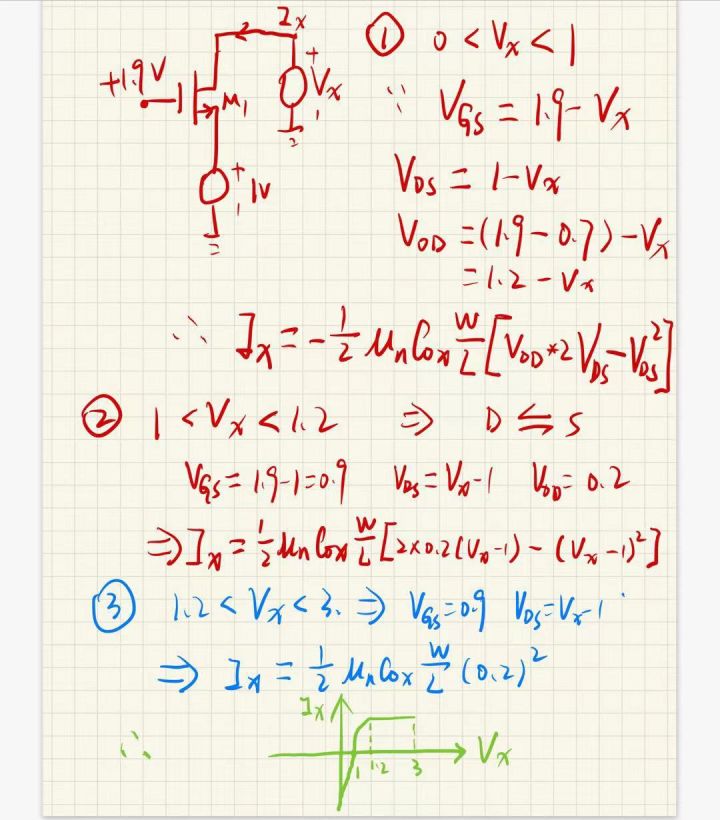 I_x
+1.9V
M_1
+
V_x
-
+
1V
-
① 0 < V_x < 1
∵ V_GS = 1.9 - V_x
V_DS = 1 - V_x
V_OD = (1.9 - 0.7) - V_x
= 1.2 - V_x
∴ I_x = -1/2 μ_n C_ox W/L [V_OD * 2 V_DS - V_DS^2]
② 1 < V_x < 1.2 ⇒ D ⇆ S
V_GS = 1.9 - 1 = 0.9 V_DS = V_x - 1 V_OD = 0.2
⇒ I_x = 1/2 μ_n C_ox W/L [2 × 0.2 (V_x - 1) - (V_x - 1)^2]
③ 1.2 < V_x < 3. ⇒ V_GS = 0.9 V_DS = V_x - 1
⇒ I_x = 1/2 μ_n C_ox W/L (0.2)^2
I_x
∴ V_x
1 1.2 3